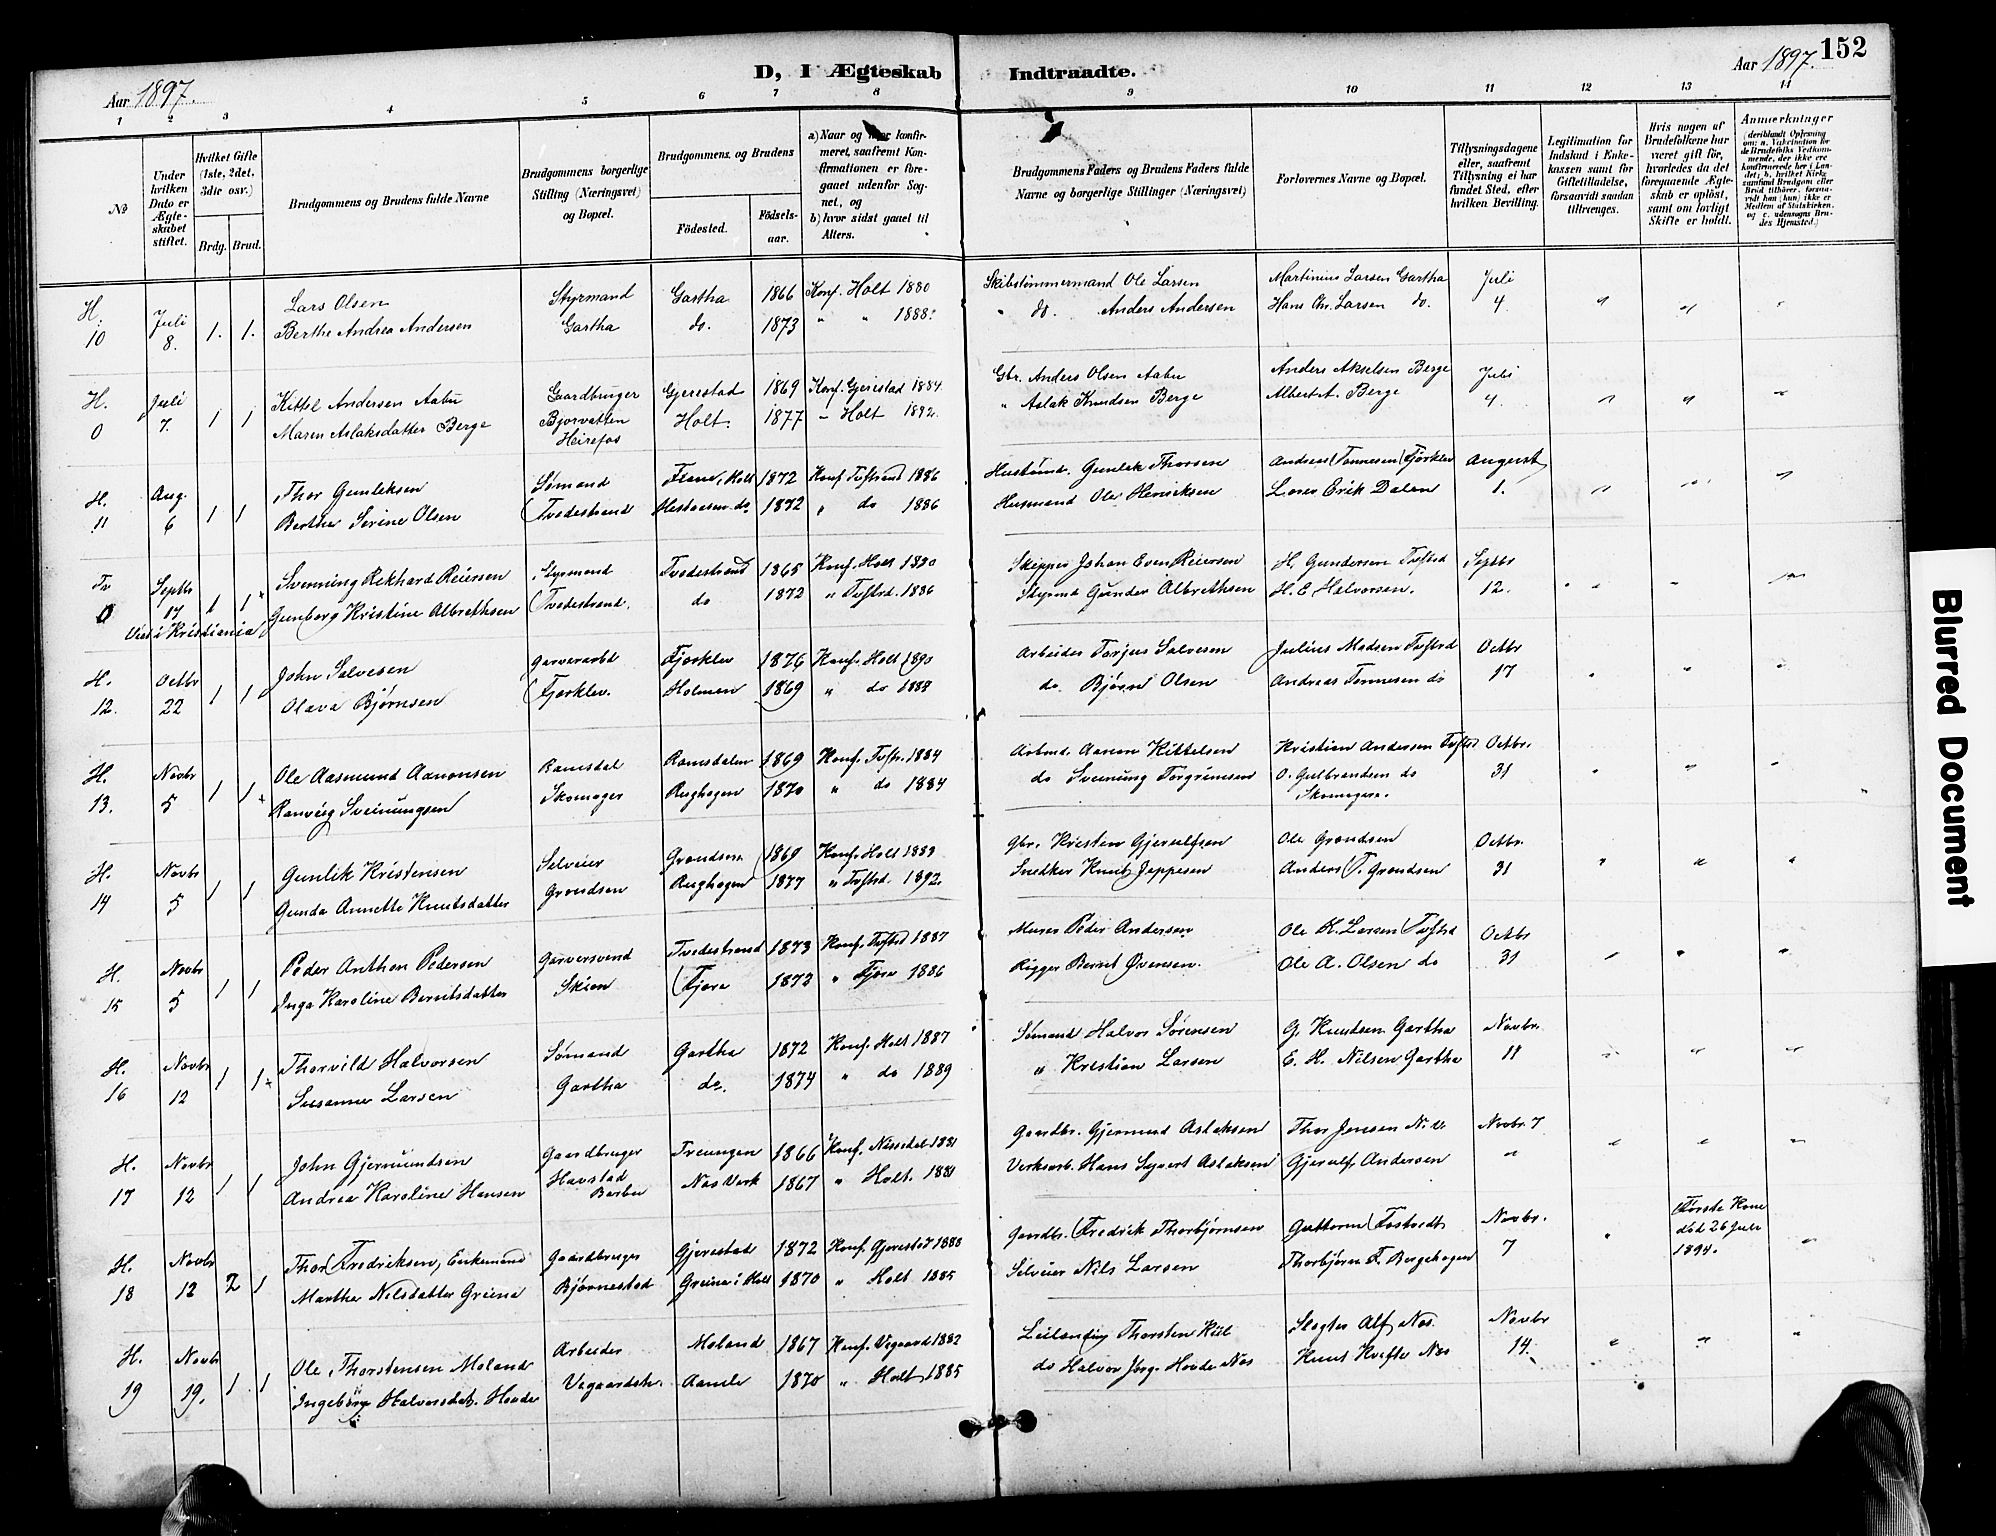 152
D, I Ægteskab Indtraadte.
Aar 1897.
Aar 1897.
1 2 3 4 5 6 7 8 9 10 11 12 13 14
№
Under hvilken Dato er Ægteskabet stiftet.
Hvilket Gifte (1ste, 2det, 3die osv.)
Brdg. Brud.
Brudgommens og Brudens fulde Navne
Brudgommens borgerlige Stilling (Næringsvei) og Bopæl.
Brudgommens og Brudens
Födested.
Födselsaar.
a) Naar og hvor konfirmeret, saafremt Konfirmationen er foregaaet udenfor Sognet, og
b) hvor sidst gaaet til Alters.
Brudgommens Faders og Brudens Faders fulde Navne og borgerlige Stillinger (Næringsvei)
Forlovernes Navne og Bopæl.
Tillysningsdagene eller, saafremt Tillysning ei har fundet Sted, efter hvilken Bevilling.
Legitimation for Indskud i Enkekassen samt for Giftetilladelse, forsaavidt saadan tiltrænges.
Hvis nogen af Brudefolkene har været gift för, hvorledes da det foregaaende Ægteskab er oplöst, samt om lovligt Skifte er holdt.
Anmerkninger
H. 10 Juli 8. 1. 1. Lars Olsen Styrmand Gartha 1866 Konf. Holt 1880 Skibstømmermand Ole Larsen Martinius Larsen Gartha Juli
Berthe Andrea Andersen Gartha do. 1873 " " 1888. " do. Anders Andersen Hans Chr. Larsen do. 4.
H. 0 Juli 7. 1 1 Kittel Andersen Aabu Gaardbruger Gjerestad 1869 Konf. Gjerestad 1884. Gbr. Anders Olsen Aabu Anders Akselsen Berge Juli
Maren Aslaksdatter Berge Bjorvatten Heirefos Holt. 1877 - Holt 1892. " Aslak Knudsen Berge Albert A. Berge 4.
H. 11 Aug. 6 1 1 Thor Gunleksen Sømand 1872 Konf 1886 Gunlek Thorsen Andreas Tønnesen Fjørklev August
Berthe Serine Olsen Tvedestrand do 1872 " do 1886 Husmand Ole Henriksen Erik Dalen 1.
Tv 0 Septbr 17 1 1 Svenning Rekhard Reiersen Styrmand Tvedestrand 1865 Konf. Holt 1880 Skipper Johan Even Reiersen H. Gundersen Tvestrd Septbr
Viet i Kristiania Gunborg Kristine Albrethsen Tvedestrand. do 1872 " Tvestrd. 1886 Styrmd Gunder Albrethsen H. E Halvorsen. 12.
H. 12. Octbr 22 1 1 John Salvesen Garverarbd Fjorklev 1876 Konf. Holt 1890 Arbeider Torjus Salvesen Julius Madsen Tvestrd Octbr
Olava Bjørnsen Fjorklev. Holmen 1869 " do do Bjørn Olsen Andreas Tønnesen do 17
H. 13. Novbr 5 1 1 Ole Aasmund Aanonsen Ramsdal Ramsdalen 1869 Konf. 1884 Arbmd. Aanon Kittelsen Kristian Andersen Tvestrd Octbr.
Ranveig Sveinungsen Skomager Rughagen 1870 " do 1884 do Sveinung Torgrimsen O. Gulbrandsen do 31
Skomagere.
H. 14 Novbr 5 1 1 Gunlik Kristensen Selveier Grendsen 1869 Konf. Holt Gbr. Kristen Gjerulfsen Ole Grendsen Octbr.
Gunda Annette Knutsdatter Grendsen Rughagen 1877 " Tvestrd. 1892. Snedker Knut Jeppesen Anders T. Grendsen 31
H. 15 Novbr 5 1 1 Peder Anthon Pedersen Garversvend Tvedestrand 1873 Konf. Tvestrd 1887 Murer Peder Andersen Ole K. Larsen Tvestrd Octbr
Inga Karoline Berntsdatter Skien Fjære 1872 " Fjære 1886 Rigger Bernt Øvensen. Ole A. Olsen do 31
H. 16 Novbr 12 1 1 Thorvild Halvorsen Sømand Gartha 1872 Konf. Holt 1887 Sømand Halvor Sørensen G. Knutsen Gartha Novbr.
Susanne Larsen Gartha do. 1874 " do 1889 " Kristian Larsen E. H. Nilsen Gartha 11
H. 17 Novbr 12 1 1 John Gjermundsen Gaardbruger Treungen 1866 Konf. Nissedal 1881 Gaardbr. Gjermund Aslaksen Thor Jensen N. V. Novbr. 7
Andrea Karoline Hansen Havstad Barbu Næs Verk 1867 " Holt. Verksarb. Hans Syvert Aslaksen Gjerulf Andersen "
H. 18 Novbr 12 2 1 Thor Fredriksen, Enkemand Gaardbruger Gjerestad 1872 Konf. Gjerestad Gaardbr. Fredrik Thorbjørnsen Guthorm Fostvedt Novbr. Første Kone død 26 Juli
Martha Nilsdatter Greina Bjørnestad Greina i Holt 1870 " Holt 1885 Selveier Nils Larsen Thorbjørn F. Bergehagen 7 1894.
H. 19 Novbr 19. 1 1 Ole Thorstensen Moland Arbeider Moland 1867 Konf. Vegaard 1882 Leilending Thorsten Kiil Slagter Alf Næs. Novbr
Ingeborg Halvorsdat. Hovde Vegaardsh. Aamli 1870 " Holt 1885 do Halvor Jørg. Hovde Næs Knut Kvifte Næs 14.
Blurred Document